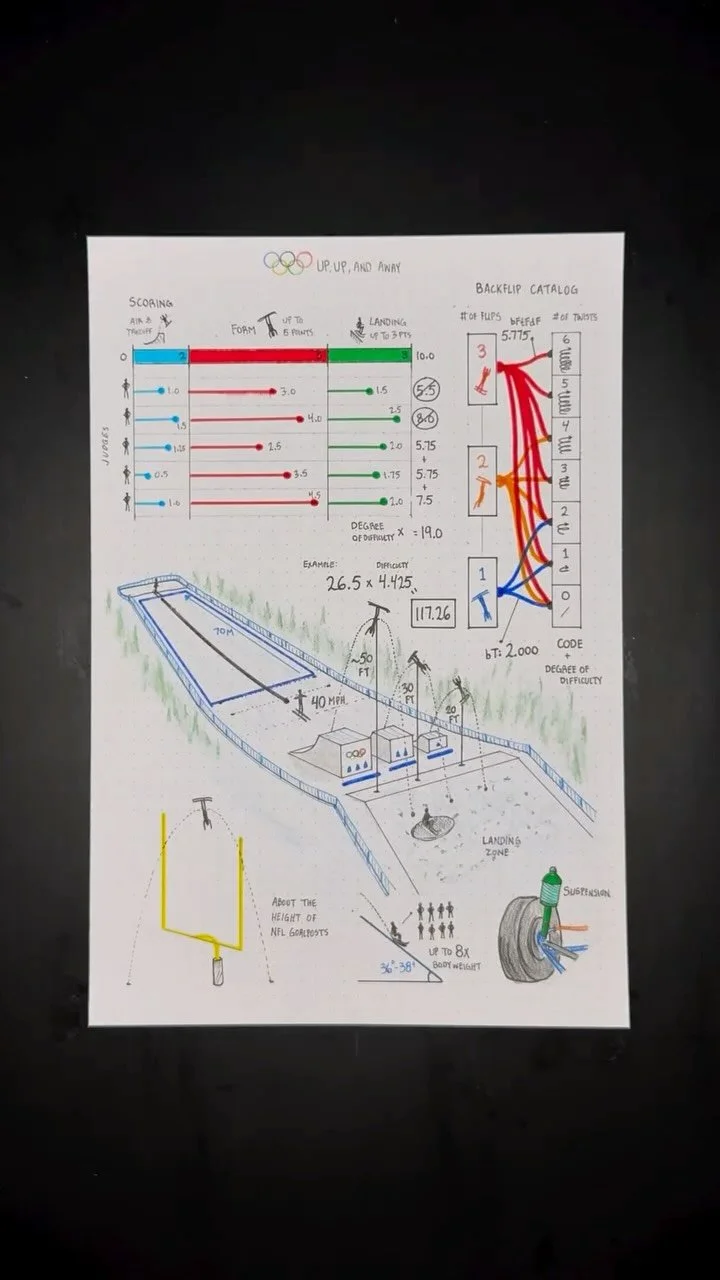 UP, UP, AND AWAY
SCORING
AIR &
TAKEOFF
FORM
UP TO
5 POINTS
LANDING
UP TO 3 PTS
0
2
5
3
10.0
JUDGES
1.0
3.0
1.5
5.5
1.5
4.0
2.5
8.0
1.25
2.5
2.0
5.75
+
0.5
3.5
1.75
5.75
+
1.0
4.5
2.0
7.5
DEGREE
OF DIFFICULTY
X
= 19.0
EXAMPLE:
DIFFICULTY
26.5 x 4.425
117.26
BACKFLIP CATALOG
# OF FLIPS
bFdFdF
5.775
# OF TWISTS
3
2
1
6
5
4
3
2
1
0
bT: 2.000
CODE
+
DEGREE OF
DIFFICULTY
70M
40 MPH
~50
FT
30
FT
20
FT
LANDING
ZONE
ABOUT THE
HEIGHT OF
NFL GOALPOSTS
36°-38°
UP TO 8x
BODY WEIGHT
SUSPENSION